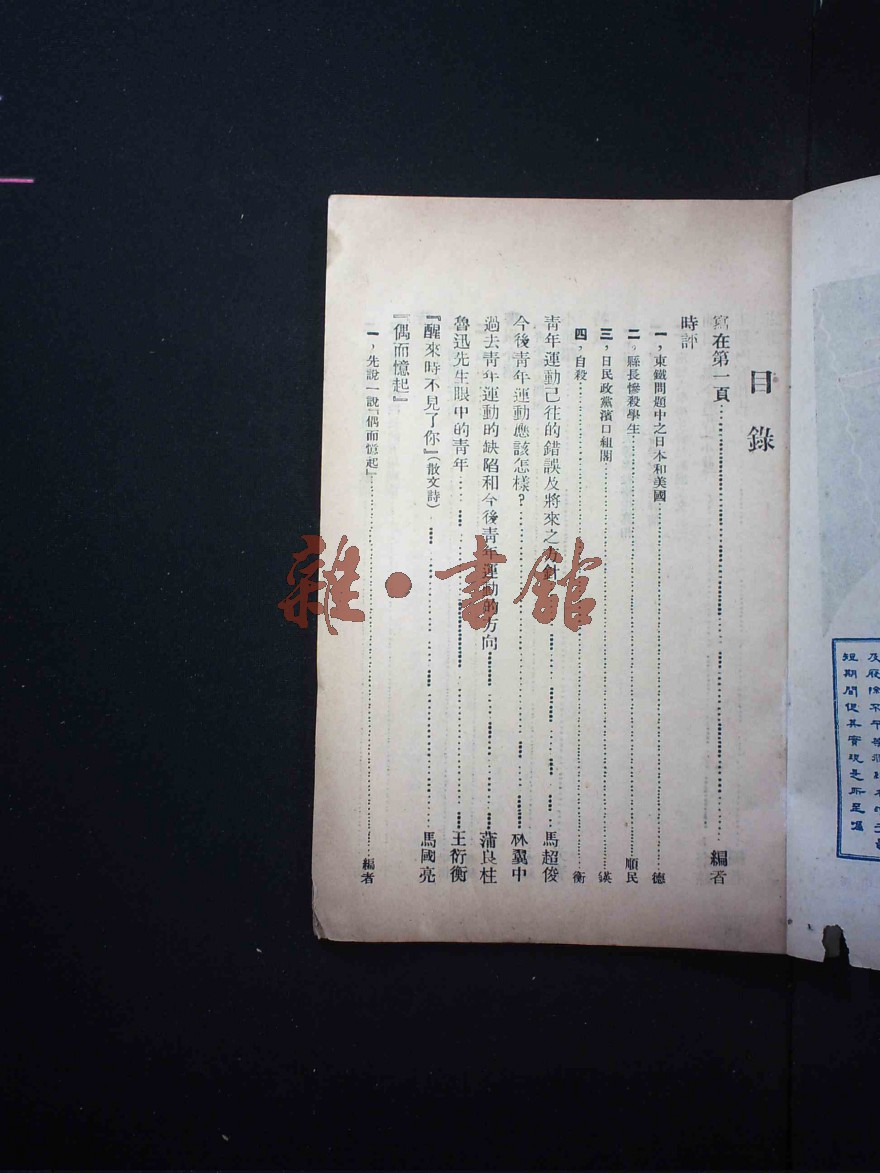 目錄
寫在第一頁……編者
時評
一，東鐵問題中之日本和美國……德
二。縣長慘殺學生……順民
三，日民政黨濱口組閣……鍈
四，自殺……衡
青年運動已往的錯誤及將來之方針……馬超俊
今後青年運動應該怎樣？……林翼中
過去青年運動的缺陷和今後青年運動的方向……蒲良柱
魯迅先生眼中的青年……王衍衡
『醒來時不見了你』（散文詩）……馬國亮
『偶而憶起』
一，先說一說「偶而憶起」……編者
雜·書館
短期間促其實現是所至囑